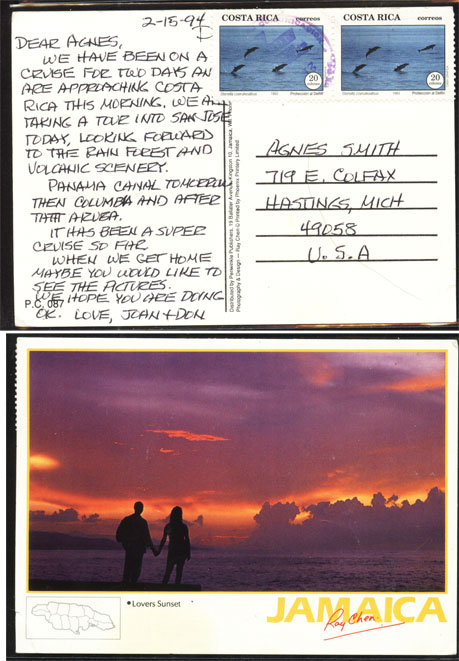 2-15-94
DEAR AGNES,
WE HAVE BEEN ON A
CRUISE FOR TWO DAYS AN
ARE APPROACHING COSTA
RICA THIS MORNING. WE A
TAKING A TOUR INTO SAN JOSE
TODAY, LOOKING FORWARD
TO THE RAIN FOREST AND
VOLCANIC SCENERY.
PANAMA CANAL TOMORROW
THEN COLUMBIA AND AFTER
THAT ARUBA.
IT HAS BEEN A SUPER
CRUISE SO FAR
WHEN WE GET HOME
MAYBE YOU WOULD LIKE TO
SEE THE PICTURES.
P.C. 087
WE HOPE YOU ARE DOING
OK. LOVE, JOAN + DON
Distributed by Publishers, 19 Avenue, Kingston 10, Jamaica,
Photography & Design — Ray Chen Printed by Phoenix Printery Limited
COSTA RICA correos
20
1993 Protección al Delfín
COSTA RICA correos
20
1993 Protección al Delfín
AGNES SMITH
719 E. COLFAX
HASTINGS, MICH
49058
U.S.A
• Lovers Sunset
JAMAICA
Ray Chen